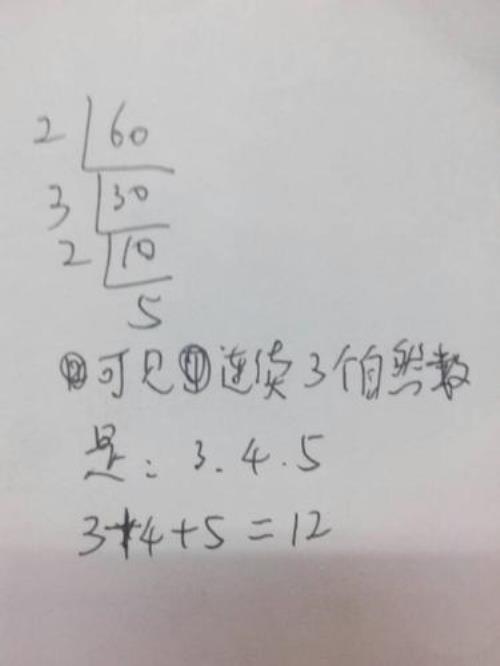 2 60
3 30
2 10
5
可见 连续3个自然数
是: 3.4.5
3+4+5=12